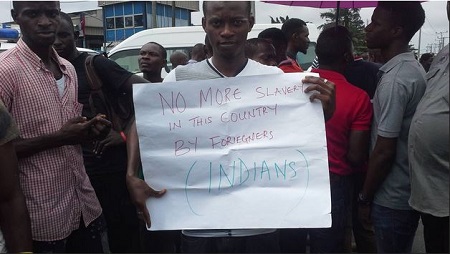 NO MORE SLAVERY
IN THIS COUNTRY
BY FOREIGNERS
(INDIANS)